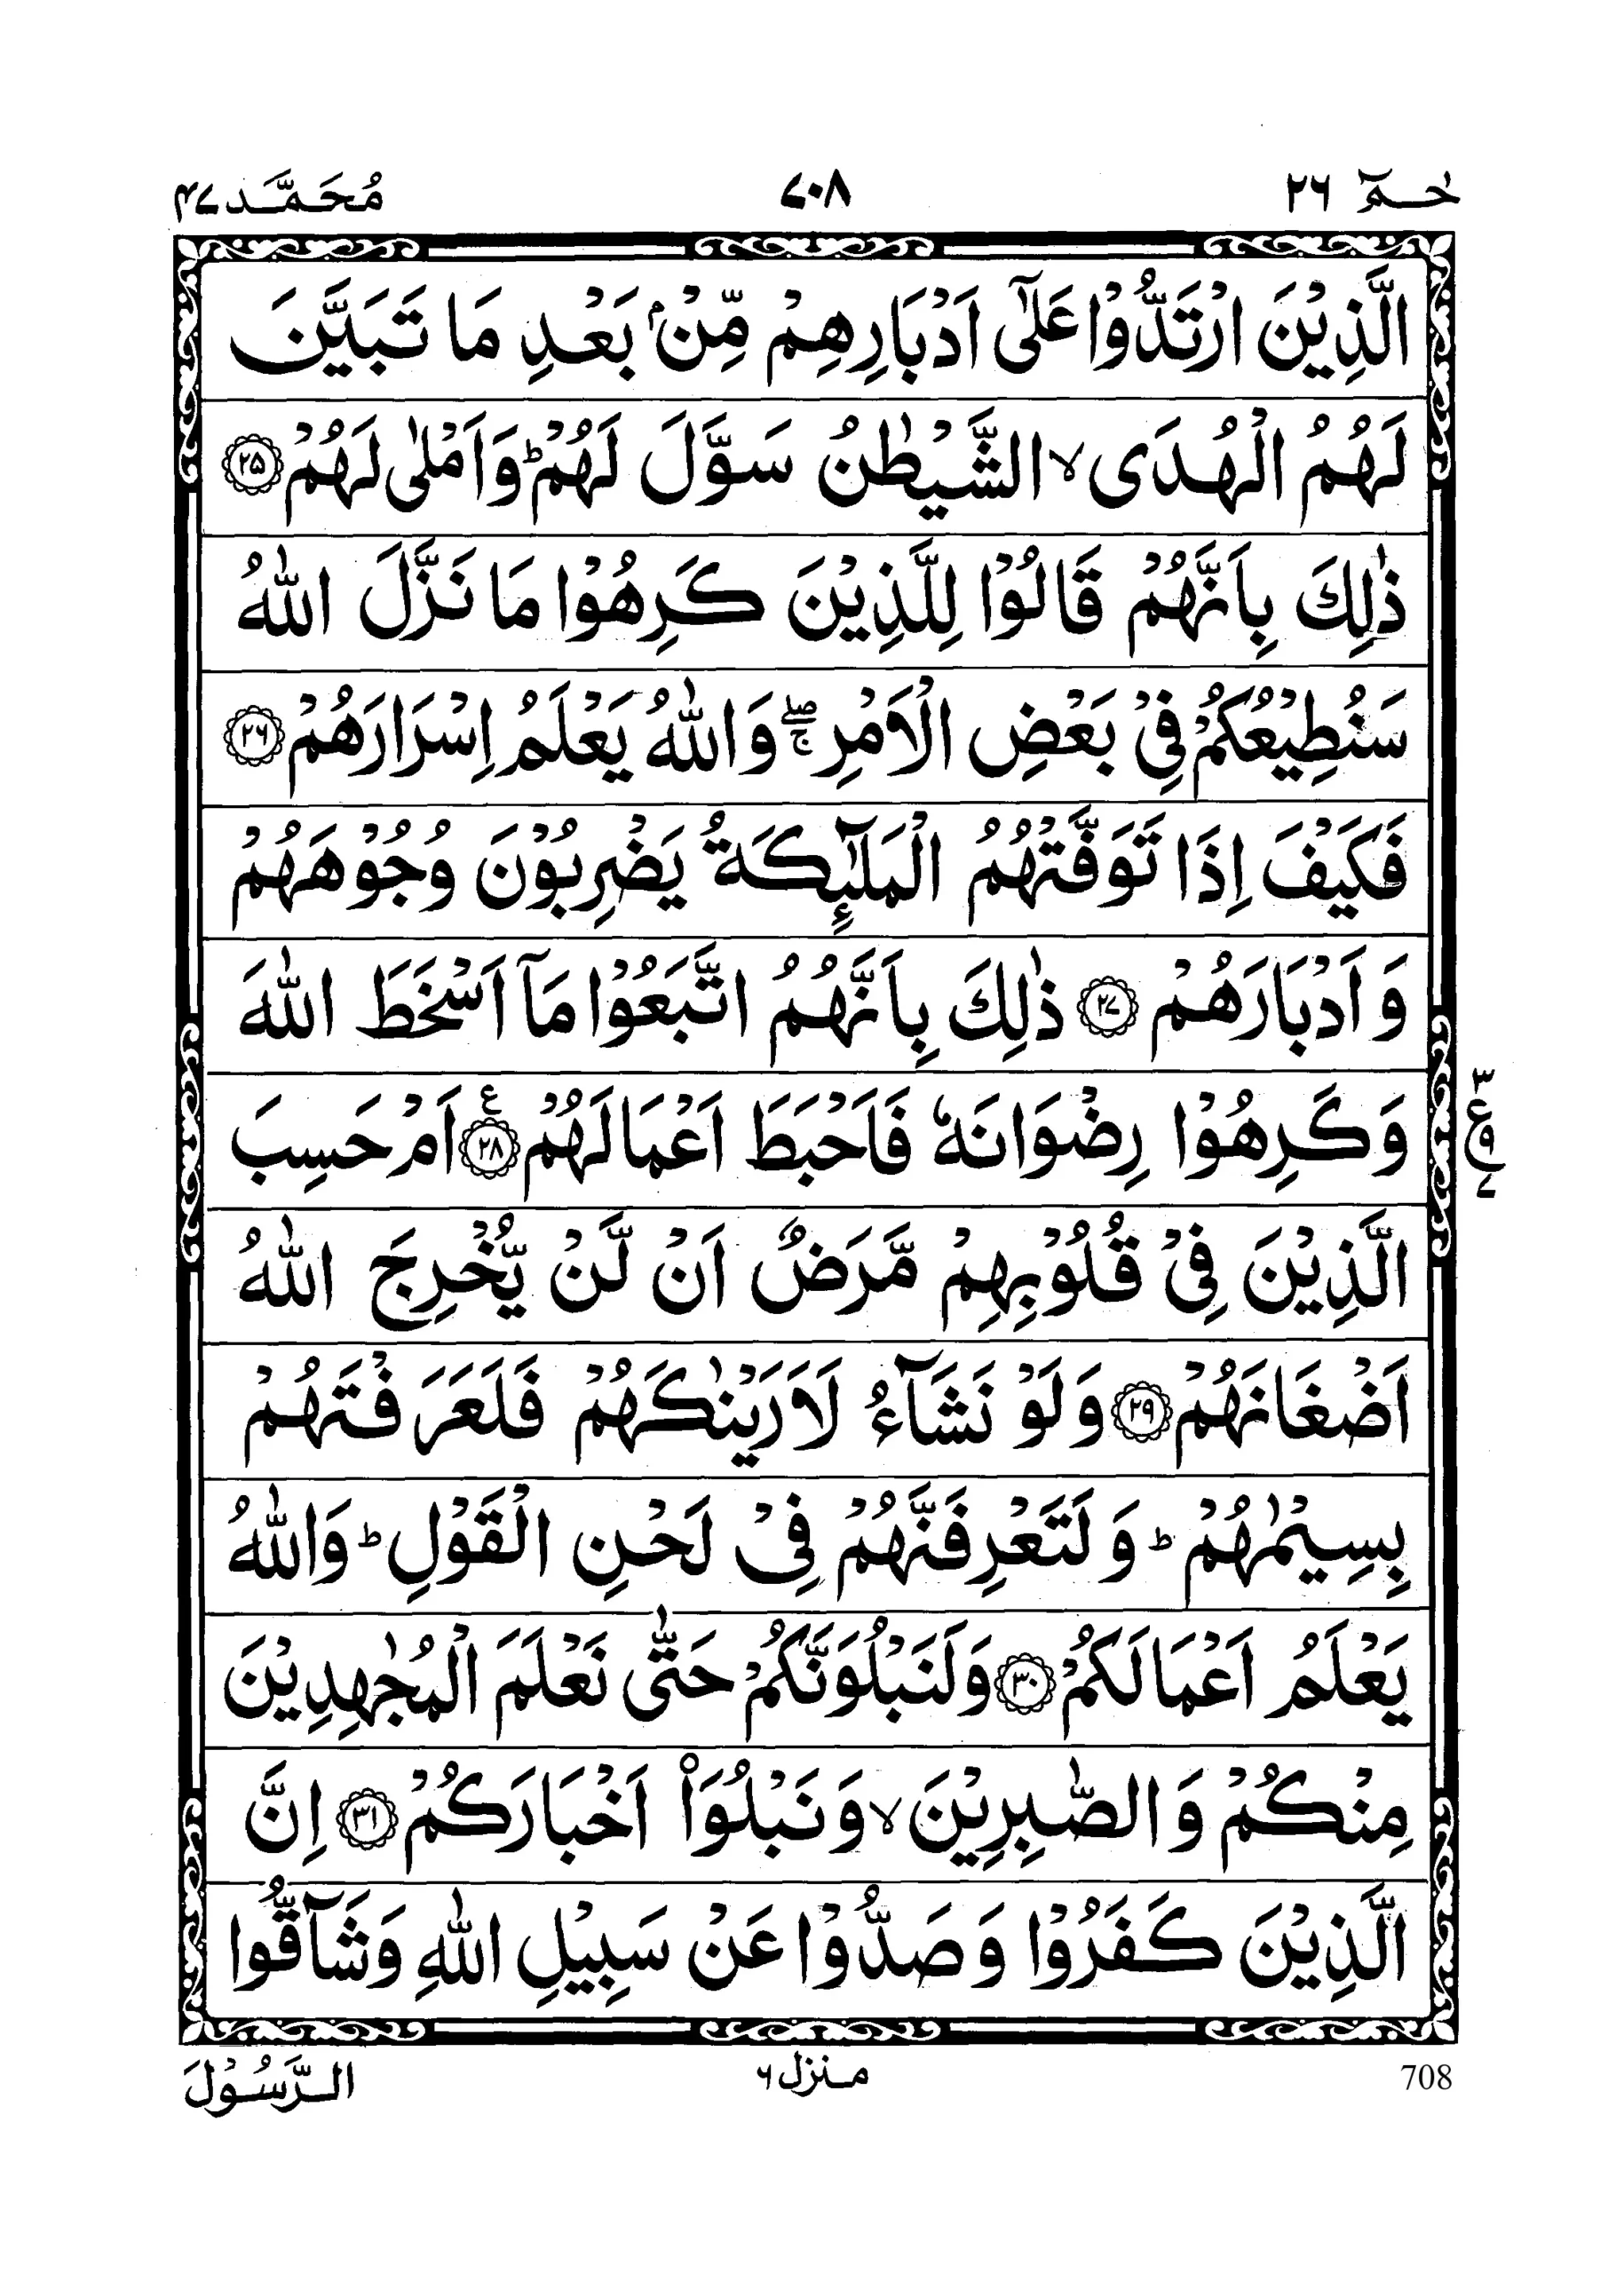 حٰمٓ ٢٦
٧٠٨
مُحَمَّد ٤٧
الَّذِيْنَ ارْتَدُّوْا عَلٰٓى اَدْبَارِهِمْ مِّنْۢ بَعْدِ مَا تَبَيَّنَ
لَهُمُ الْهُدَى ۙ الشَّيْطٰنُ سَوَّلَ لَهُمْ ؕ وَاَمْلٰى لَهُمْ ﴿۲۵﴾
ذٰلِكَ بِاَنَّهُمْ قَالُوْا لِلَّذِيْنَ كَرِهُوْا مَا نَزَّلَ اللّٰهُ
سَنُطِيْعُكُمْ فِيْ بَعْضِ الْاَمْرِ ۖۚ وَاللّٰهُ يَعْلَمُ اِسْرَارَهُمْ ﴿۲۶﴾
فَكَيْفَ اِذَا تَوَفَّتْهُمُ الْمَلٰٓئِكَةُ يَضْرِبُوْنَ وُجُوْهَهُمْ
وَاَدْبَارَهُمْ ﴿۲۷﴾ ذٰلِكَ بِاَنَّهُمُ اتَّبَعُوْا مَاۤ اَسْخَطَ اللّٰهَ
وَكَرِهُوْا رِضْوَانَهٗ فَاَحْبَطَ اَعْمَالَهُمْ ﴿۲۸﴾ۧ اَمْ حَسِبَ
٣
ع
٩
٧
الَّذِيْنَ فِيْ قُلُوْبِهِمْ مَّرَضٌ اَنْ لَّنْ يُّخْرِجَ اللّٰهُ
اَضْغَانَهُمْ ﴿۲۹﴾ وَلَوْ نَشَآءُ لَاَرَيْنٰكَهُمْ فَلَعَرَفْتَهُمْ
بِسِيْمٰهُمْ ؕ وَلَتَعْرِفَنَّهُمْ فِيْ لَحْنِ الْقَوْلِ ؕ وَاللّٰهُ
يَعْلَمُ اَعْمَالَكُمْ ﴿۳۰﴾ وَلَنَبْلُوَنَّكُمْ حَتّٰى نَعْلَمَ الْمُجٰهِدِيْنَ
مِنْكُمْ وَالصّٰبِرِيْنَ ۙ وَنَبْلُوَا۟ اَخْبَارَكُمْ ﴿۳۱﴾ اِنَّ
الَّذِيْنَ كَفَرُوْا وَصَدُّوْا عَنْ سَبِيْلِ اللّٰهِ وَشَآقُّوا
708
منزل ٦
الرَّسُوْلَ